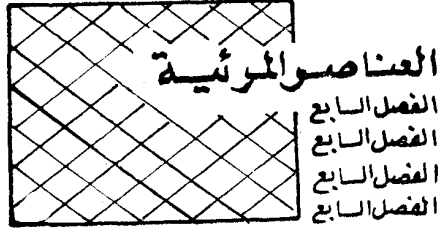 العناصر المرئية
الفصل السابع
الفصل السابع
الفصل السابع
الفصل السابع